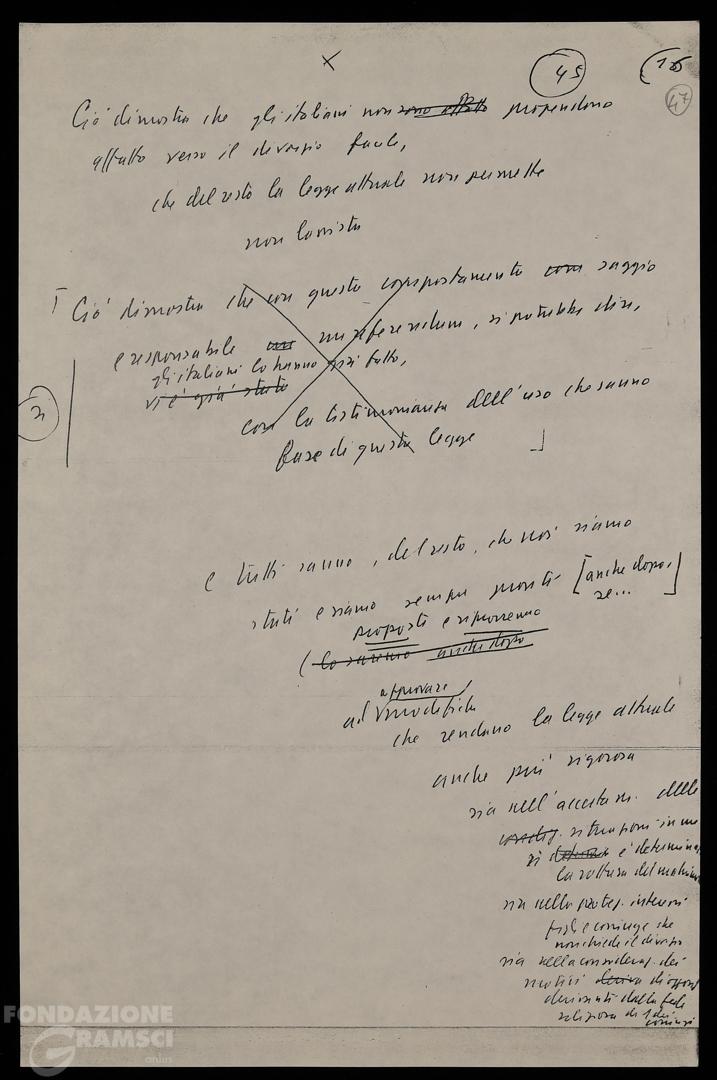 x
45
135
47
Ciò dimostra che gli italiani non sono affatto propendono
affatto verso il divorzio facile,
che del resto la legge attuale non permette
non lascia
[ Ciò dimostra che con questo comportamento così saggio
e responsabile un referendum, si potrebbe dire,
gli italiani lo hanno già fatto,
vi è già stato
con la testimonianza dell'uso che sanno
fare di questa legge ]
e tutti sanno, del resto, che noi siamo
stati e siamo sempre pronti [anche dopo,
se...]
proposti e riproporremo
(lo saremo anche dopo
approvare
ad modifiche
che rendano la legge attuale
anche più rigorosa
sia nell'accertam. delle
situazioni in cui
si è determinata
la rottura del matrim
sia nella protez. interessi
figli e coniuge che
non chiede il divorzio
sia nella consideraz. dei
motivi di oppos
derivanti dalla fede
religiosa di 1 dei
coniugi
FONDAZIONE
GRAMSCI
onlus